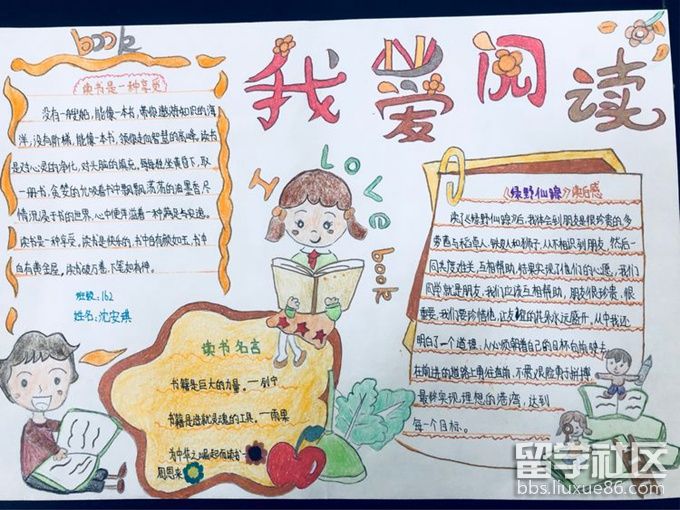 book
我爱阅读
读书是一种享受
没有一艘船，能像一本书，带你遨游知识的海
洋，没有阶梯，能像一本书，领你走向智慧的高峰，读书
是对心灵的净化，对大脑的填充。每每独坐黄昏下，取
一册书，贪婪的允吸着书中飘飘荡荡的油墨香，尽
情沉浸于书的世界，心中便洋溢着一种满足与安逸。
读书是一种享受，读书是快乐的，书中自有颜如玉，书中
自有黄金屋，读书破万卷，下笔如有神。
班级：162
姓名：沈安琪
I LOVE book
《绿野仙踪》读后感
读了《绿野仙踪》后，我体会到朋友是很珍贵的，多
萝西与稻草人、铁皮人和狮子，从不相识到朋友，然后一
同共度难关，互相帮助，结果实现了他们的心愿，我们
同学就是朋友，我们应该互相帮助，朋友很珍贵，很
重要，我们要珍惜他，让友谊的花朵永远盛开。从中我还
明白了一个道理，人必须朝着自己的目标向前驶去
在前进的道路上勇往直前，不畏艰险勇于拼搏
最终实现理想的港湾，达到
每一个目标。
读书名言
书籍是巨大的力量。——列宁
书籍是造就灵魂的工具。——雨果
为中华之崛起而读书——
周恩来
留学社区
bbs.liuxue86.com